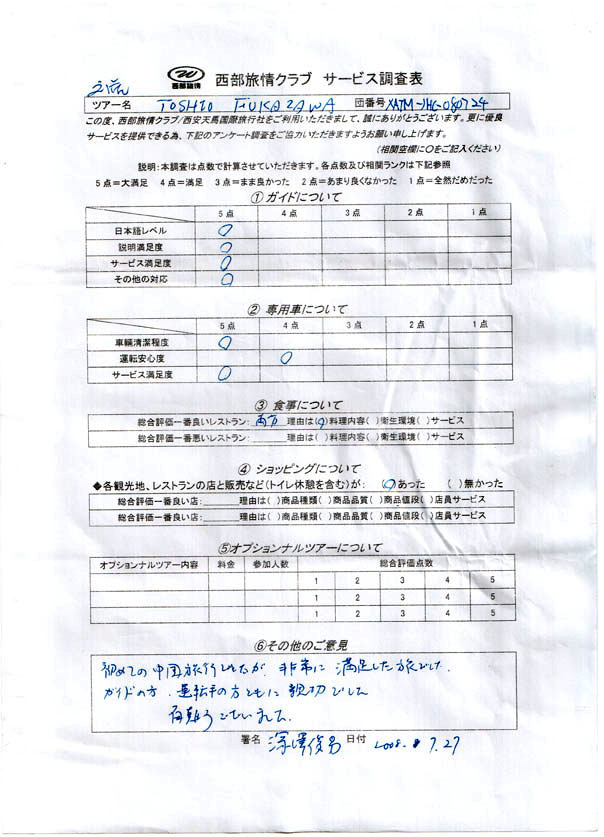 西部旅情 西部旅情クラブ サービス調査表
ツアー名 TOSHIO FUKAZAWA 団番号 XATM-JHG-080724
この度、西部旅情クラブ/西安天馬國際旅行社をご利用いただきまして、誠にありがとうございます。更に優良
サービスを提供できる為、下記のアンケート調査をご協力いただきますようお願い申し上げます。
(相関空欄に○をご記入ください)
説明:本調査は点数で計算させていただきます。各点数及び相関ランクは下記参照
5点=大満足 4点=満足 3点=まま良かった 2点=あまり良くなかった 1点=全然だめだった
① ガイドについて
5点 4点 3点 2点 1点
日本語レベル ○
説明満足度 ○
サービス満足度 ○
その他の対応 ○
② 専用車について
5点 4点 3点 2点 1点
車輛清潔程度 ○
運転安心度 ○
サービス満足度 ○
③ 食事について
総合評価一番良いレストラン: 理由は(○)料理内容( )衛生環境( )サービス
総合評価一番悪いレストラン:______理由は( )料理内容( )衛生環境( )サービス
④ ショッピングについて
◆各観光地、レストランの店と販売など(トイレ休憩を含む)が: (○)あった ( )無かった
総合評価一番良い店:______理由は( )商品種類( )商品品質( )商品値段( )店員サービス
総合評価一番悪い店:______理由は( )商品種類( )商品品質( )商品値段( )店員サービス
⑤オプショナルツアーについて
オプショナルツアー内容 料金 参加人数 総合評価点数
1 2 3 4 5
1 2 3 4 5
1 2 3 4 5
⑥その他のご意見
初めての中国旅行でしたが 非常に 満足した旅でした.
ガイドの方.運転手の方ともに親切でした
有難うございました.
署名 深澤俊男 日付 2008. 7.27